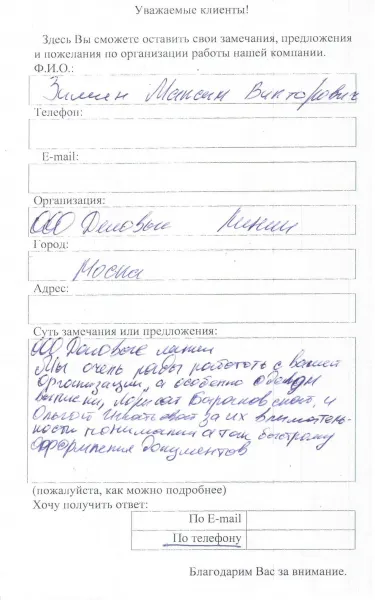 Уважаемые клиенты!
Здесь Вы сможете оставить свои замечания, предложения
и пожелания по организации работы нашей компании.
Ф.И.О.:
Зимин Максим Викторович
Телефон:
E-mail:
Организация:
ООО Деловые Линии
Город:
Москва
Адрес:
Суть замечания или предложения:
ООО Деловые линии
Мы очень рады работать с вашей
организации, а особенно
Ларисой Барановской, и
Ольгой за их вниматель-
ность понимание а так быстрому
оформления документов
(пожалуйста, как можно подробнее)
Хочу получить ответ:
По E-mail
По телефону
Благодарим Вас за внимание.